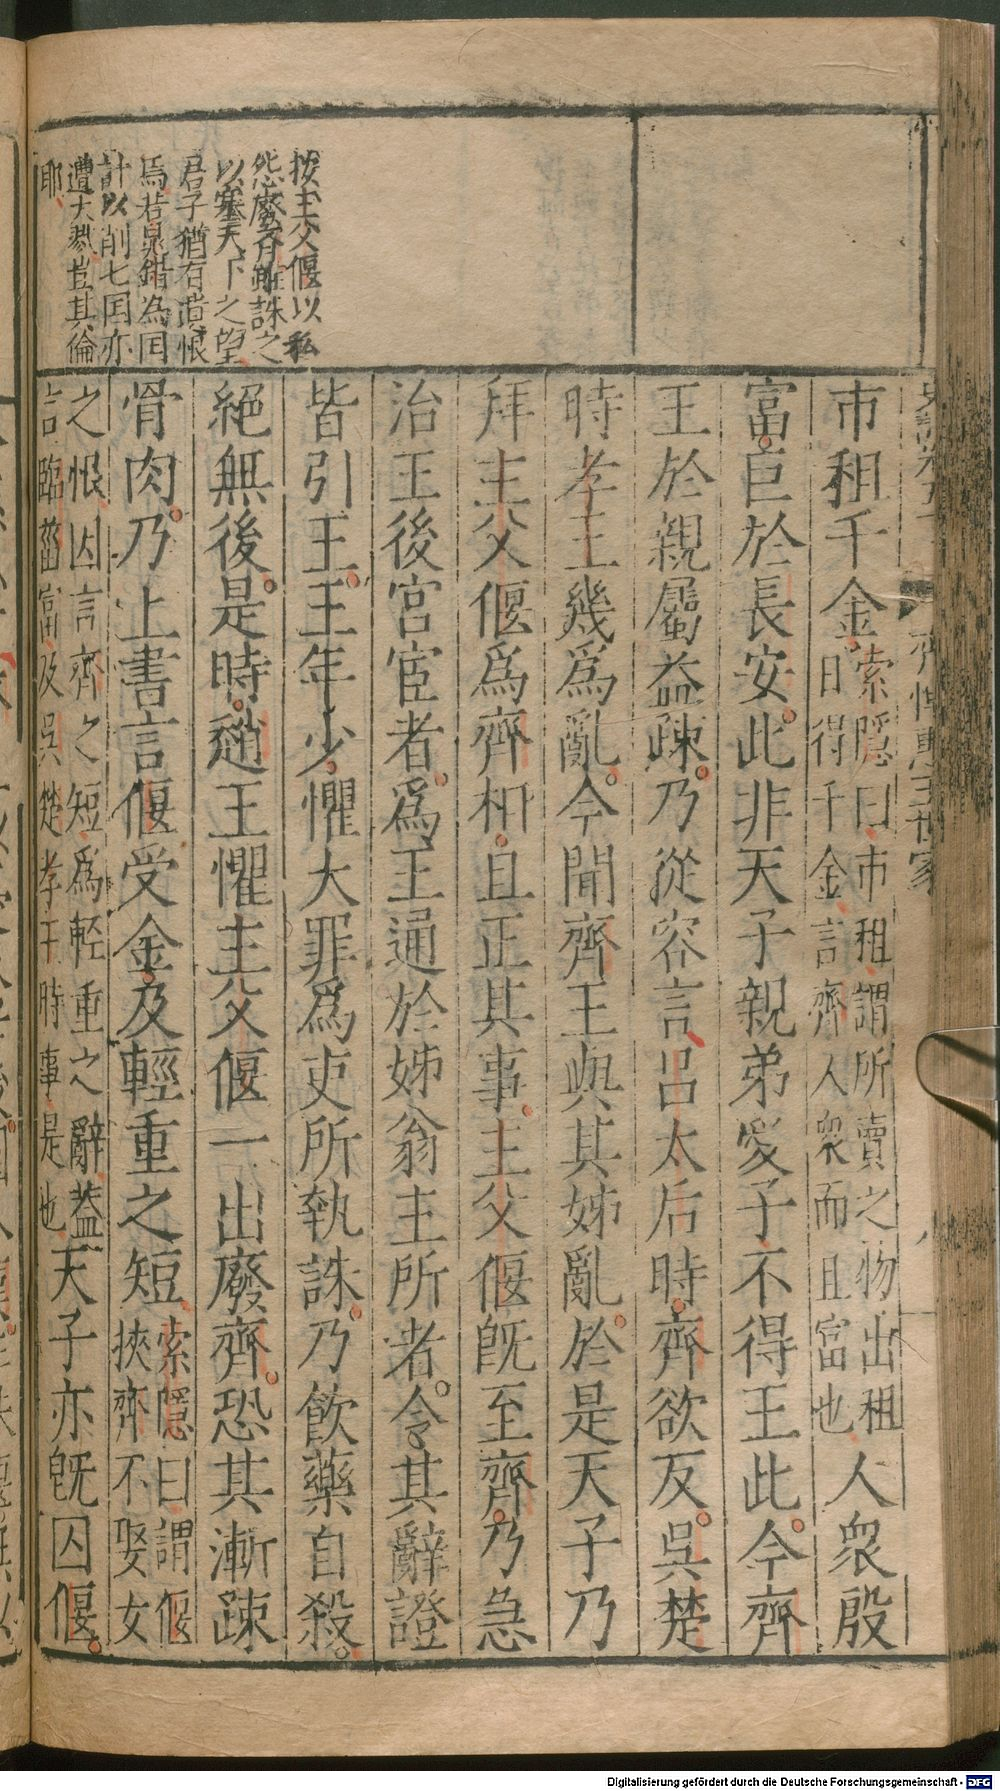 齊悼惠王世家
八
按主父偃以私
怨廢齊雖誅之
以塞天下之望
君子猶有遺恨
焉若晁錯為囯
計以削七囯亦
遭大戮豈其倫
耶
市租千金索隱曰市租謂所賣之物出租
日得千金言齊人衆而且富也人衆殷
富巨於長安此非天子親弟愛子不得王此今齊
王於親屬益疎乃從容言呂太后時齊欲反吳楚
時孝王幾爲亂今聞齊王與其姊亂於是天子乃
拜主父偃爲齊相且正其事主父偃旣至齊乃急
治王後宮宦者爲王通於姊翁主所者令其辭證
皆引王王年少懼大罪爲吏所執誅乃飮藥自殺
絕無後是時趙王懼主父偃一出廢齊恐其漸疎
骨肉乃上書言偃受金及輕重之短索隱曰謂偃
挾齊不娶女
之恨因言齊之短爲輕重之辭葢
言臨菑富及吳楚孝王時事是也天子亦旣囚偃
Digitalisierung gefördert durch die Deutsche Forschungsgemeinschaft - DFG